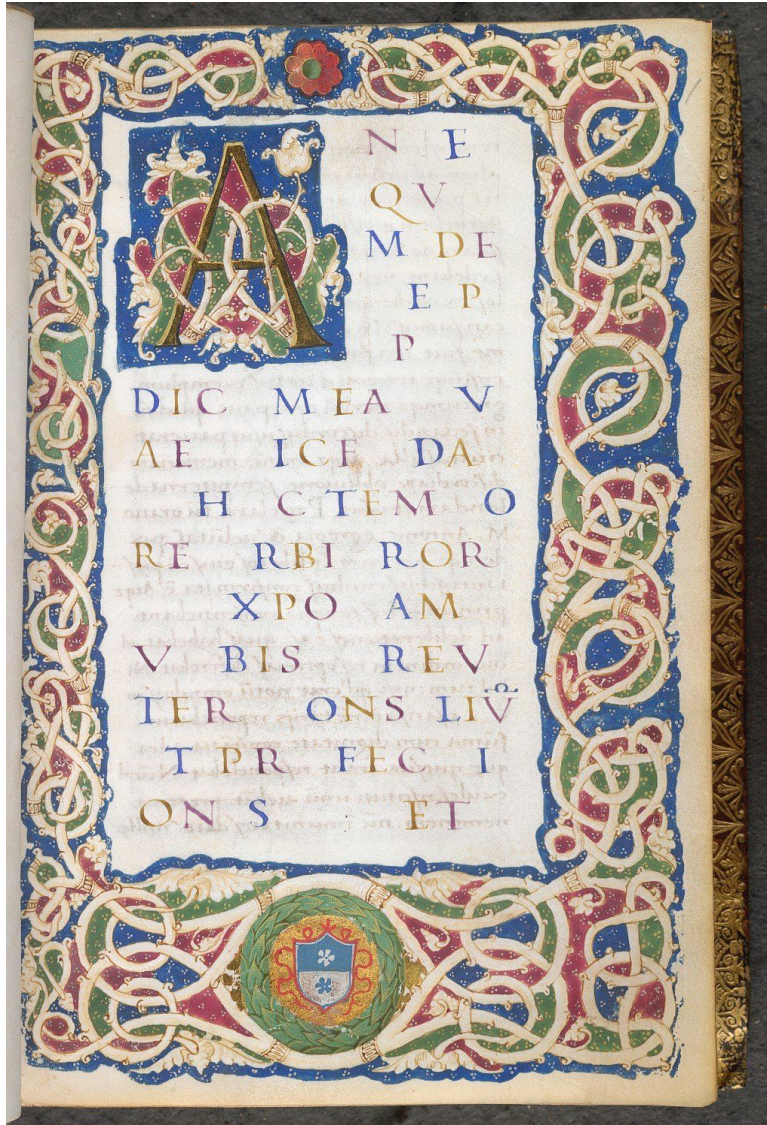 A N E
QV
M DE
E P
P
DIC MEA V
AE ICE DA
H C TEM O
RE RBI ROR
XPO AM
V BIS REV
TER ONS LIV̑
T PR FEC I
ON S ET